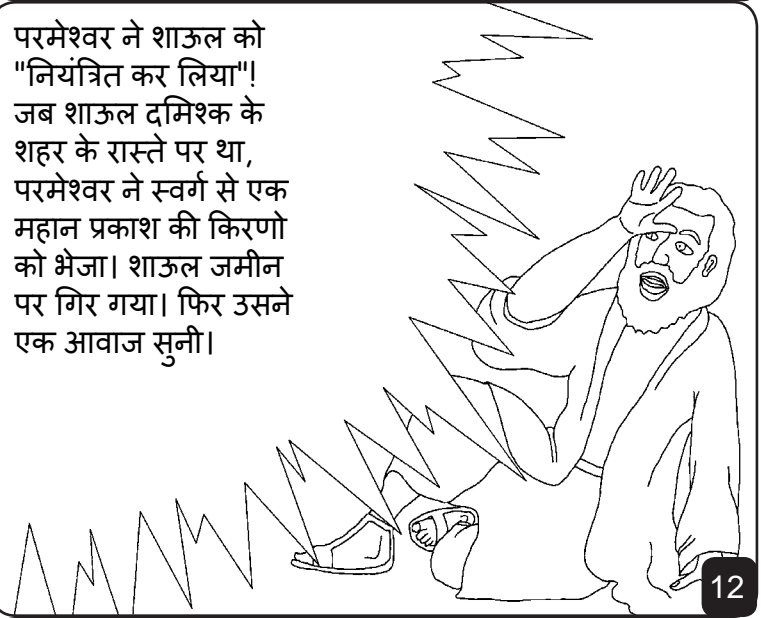 परमेश्वर ने शाऊल को
"नियंत्रित कर लिया"!
जब शाऊल दमिश्क के
शहर के रास्ते पर था,
परमेश्वर ने स्वर्ग से एक
महान प्रकाश की किरणो
को भेजा। शाऊल जमीन
पर गिर गया। फिर उसने
एक आवाज सुनी।
12